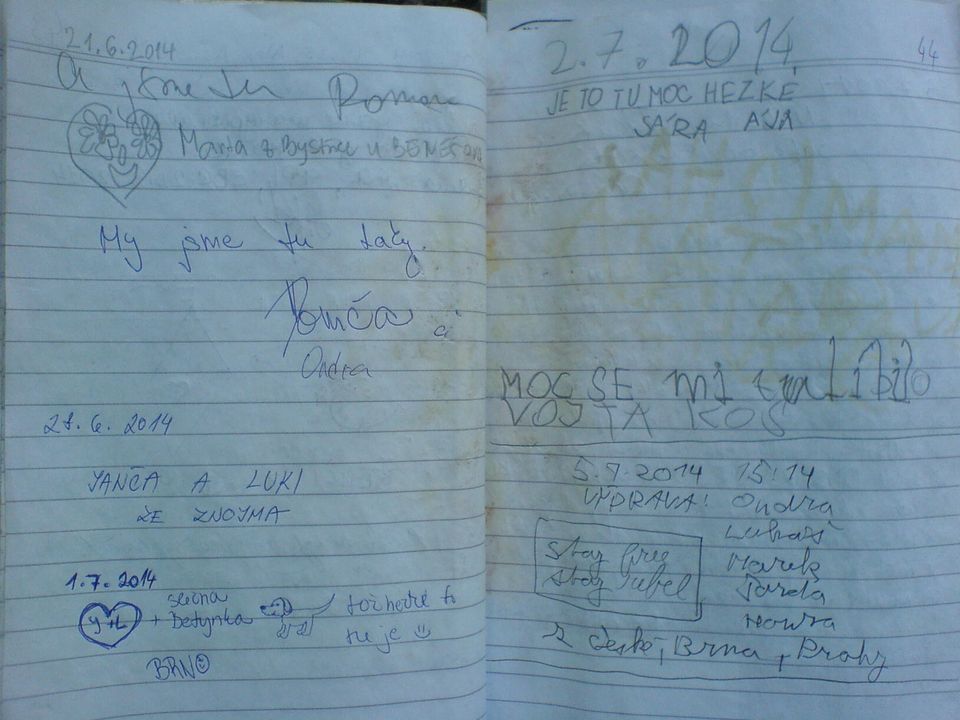 21.6.2014
A jsme tu Roman
Marta z Bystřice u BENEŠOVA
My jsme tu taky.
Romča a
Ondra
28.6. 2014
JANČA A LUKI
ZE ZNOJMA
1.7.2014
y+L + slečna
Betynka
tož hezké to
tu je
BRNO
44
2.7.2014
JE TO TU MOC HEZKÉ
SÁRA AJA
AHOJ
MOC SE mi tu líbilo
VOJTA KOS
5.7.2014 15:14
VÝPRAVA: Ondra
Lukáš
Marek
Jarda
Honza
Stay free
Stay rebel
z České, Brna, Prahy